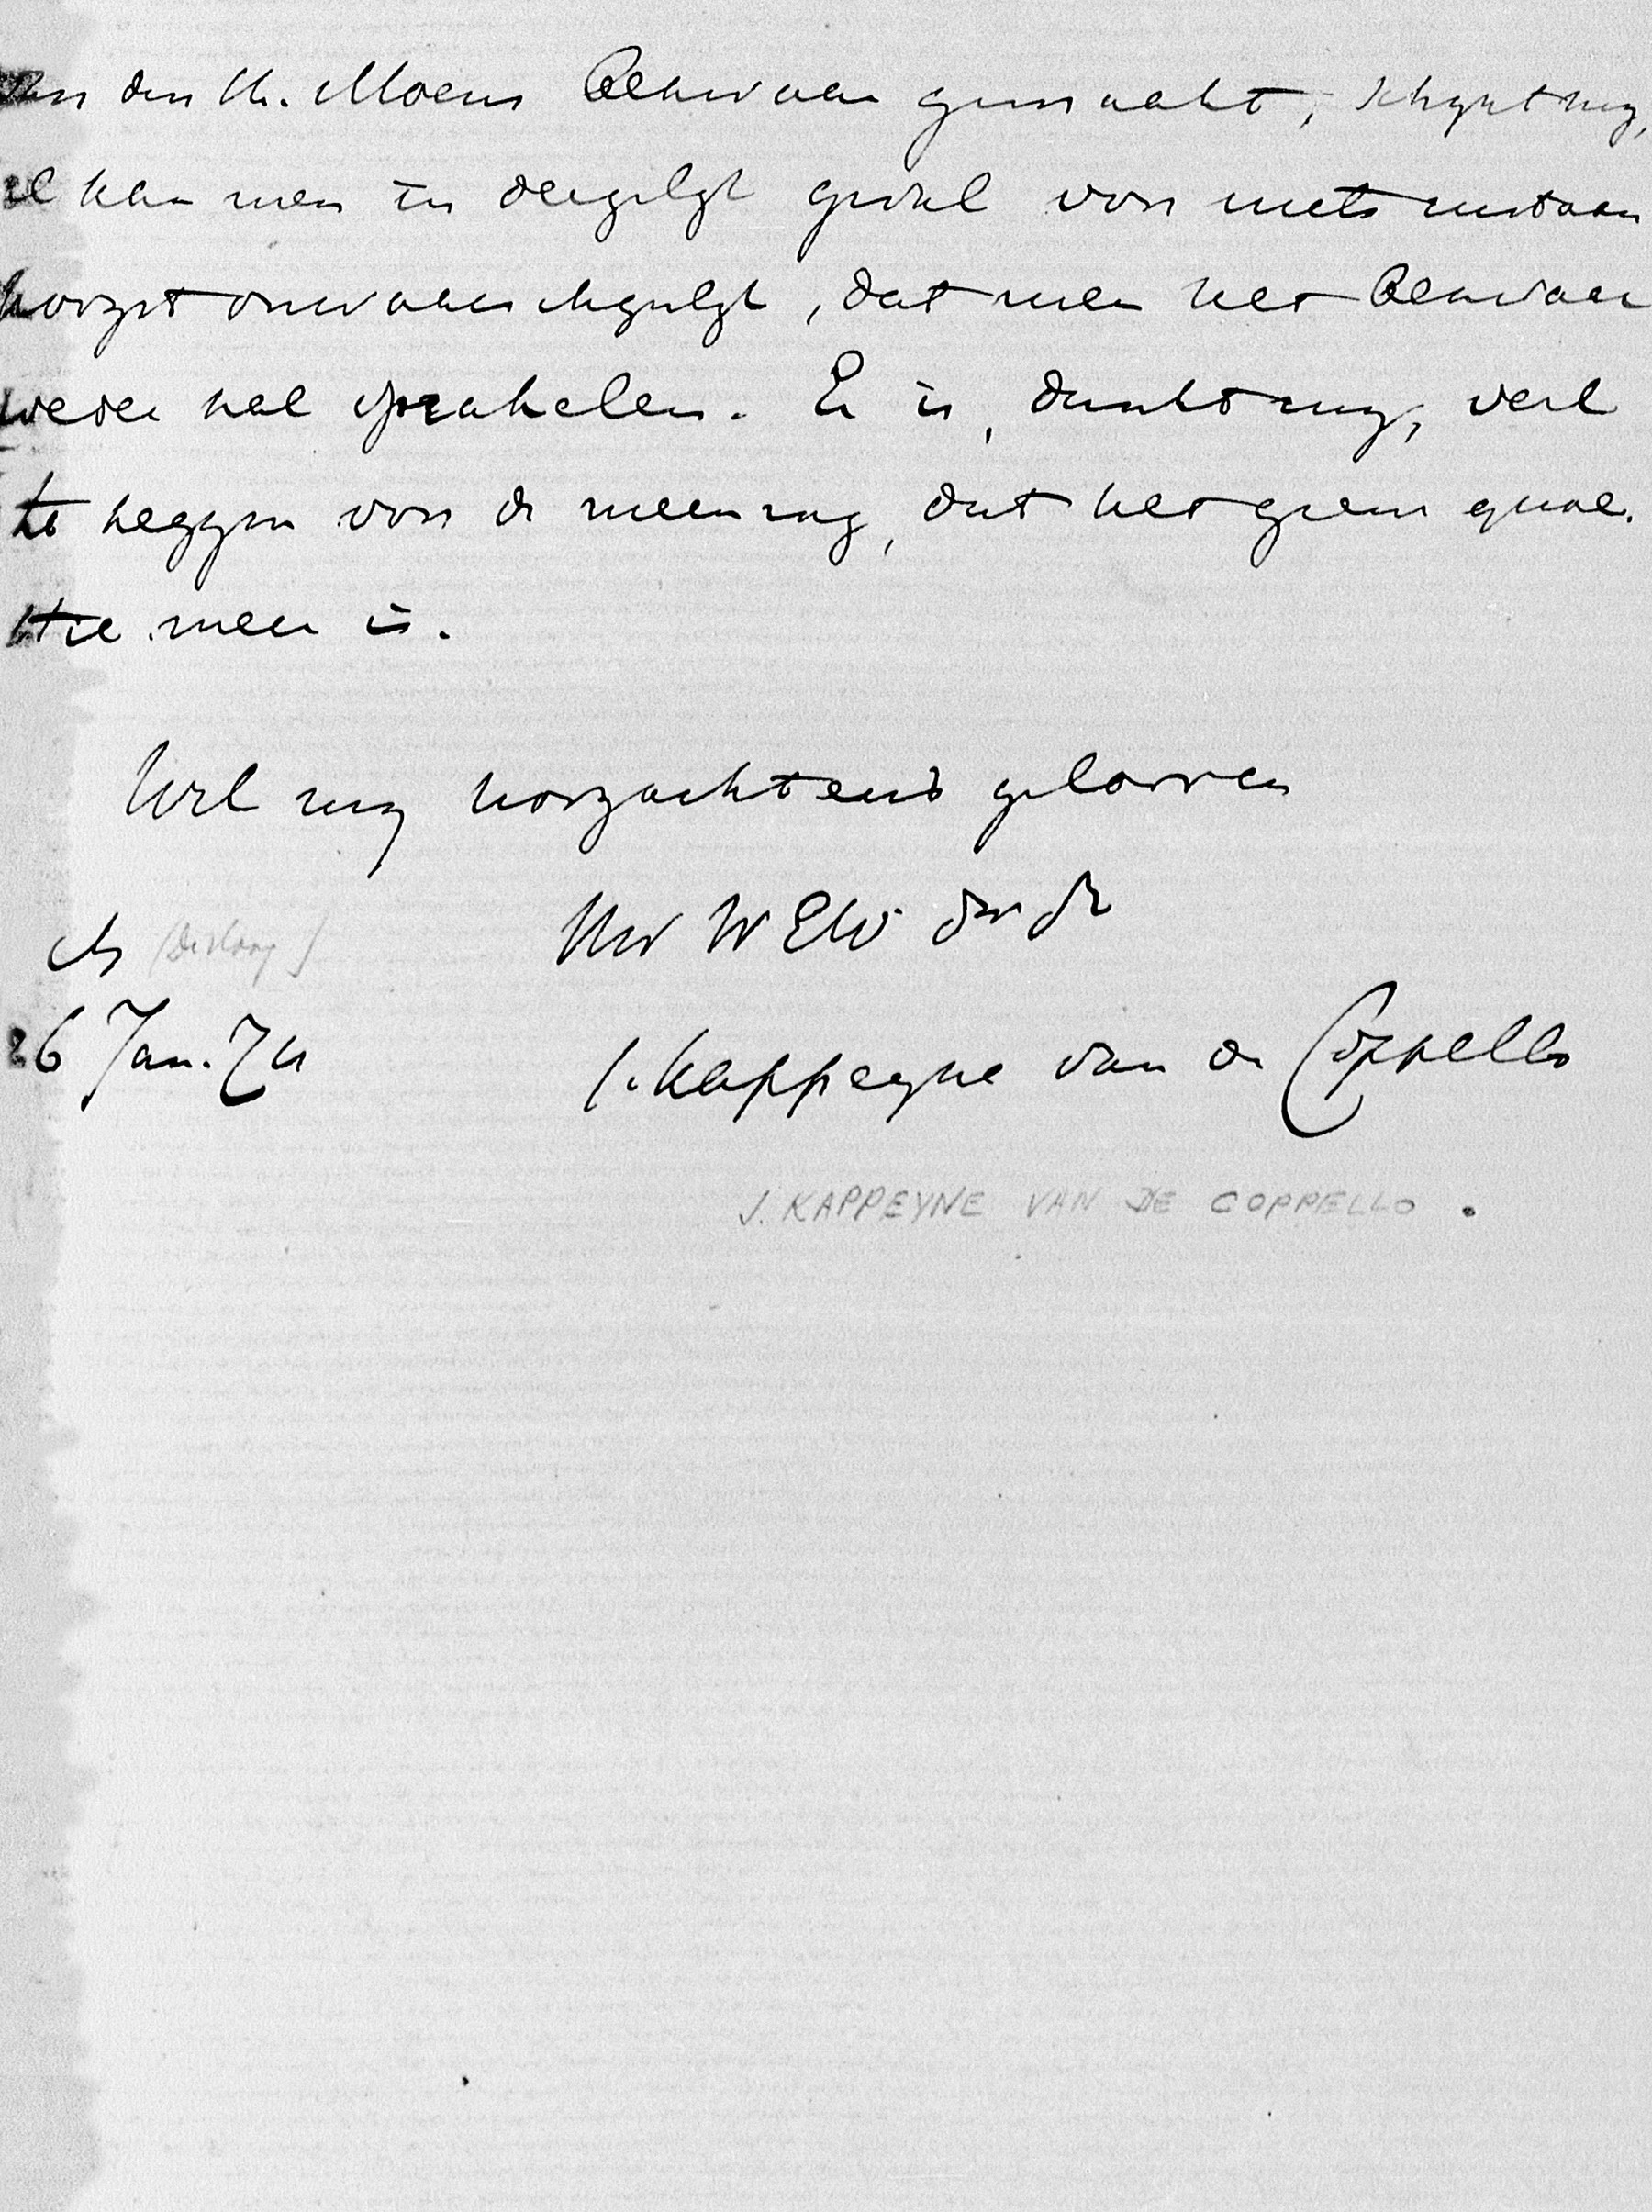 den H. Moens bezwaar gemaakt, schynt my,
al kan men in dergelyk geval voor niets instaan
hoogst onwaarschynlyk, dat men het bezwaar
weder zal oprakelen. Er is, dunkt my, veel
te zeggen voor de meening, dat het geen quae-
stie meer is.
Wel my hoogachtend gelooven
Uw WEW dw dr
(Den Haag)
26 Jan. 74
J. Kappeyne van de Coppello
J. KAPPEYNE VAN DE COPPELLO.